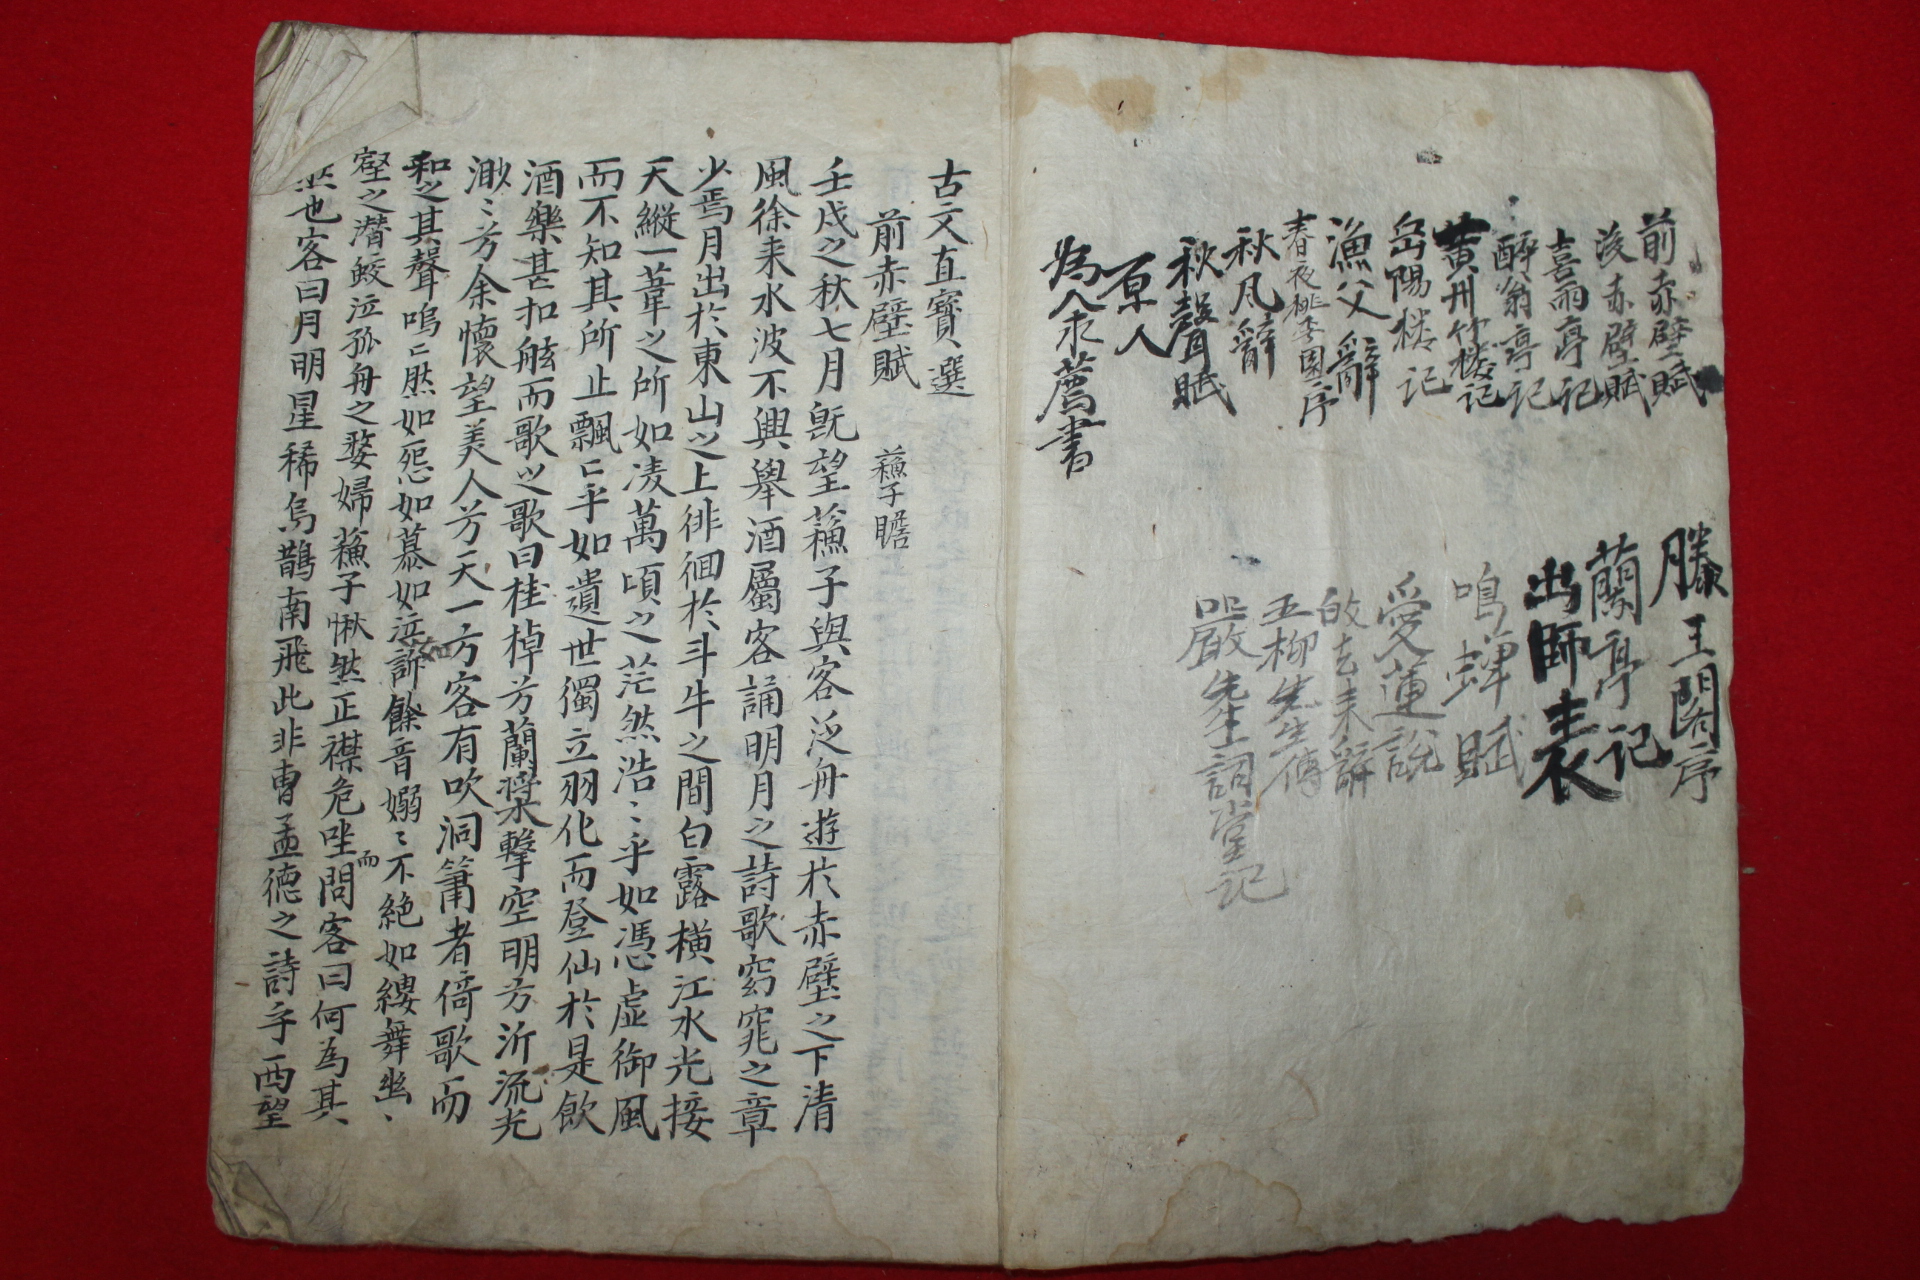 前赤壁賦
後赤壁賦
喜雨亭記
醉翁亭記
黄州竹楼記
岳陽楼記
漁父辭
春夜桃李園序
秋风辭
秋聲賦
原人
為人求薦書
滕王閣序
蘭亭記
出師表
鳴蟬賦
愛蓮說
故去来辭
五柳先生傳
嚴先生詞堂記
古文直寶選
前赤壁賦 蘓子瞻
壬戌之秋七月旣望蘓子與客泛舟遊於赤壁之下清
風徐来水波不興舉酒屬客誦明月之詩歌窈窕之章
少焉月出於東山之上徘徊於斗牛之間白露橫江水光接
天縱一葦之所如凌萬頃之茫然浩〻乎如馮虛御風
而不知其所止飄〻乎如遺世獨立羽化而登仙於是飮
酒樂甚扣舷而歌之歌曰桂棹兮蘭槳擊空明兮泝流光
渺〻兮余懷望美人兮天一方客有吹洞簫者倚歌而
和之其聲嗚〻然如怨如慕如泣訴餘音嫋〻不絶如縷舞幽
壑之潜蛟泣孤舟之嫠婦蘓子愀然正襟危坐而問客曰何為其
然也客曰月明星稀烏鵲南飛此非曺孟德之詩乎西望